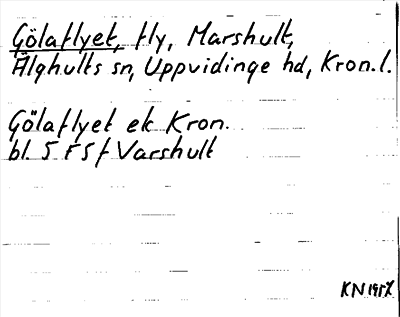 Gölaflyet, fly, Marshult,
Älghults sn, Uppvidinge hd, Kron.l.
Gölaflyet ek Kron.
bl. 5 F5f Varshult
KN